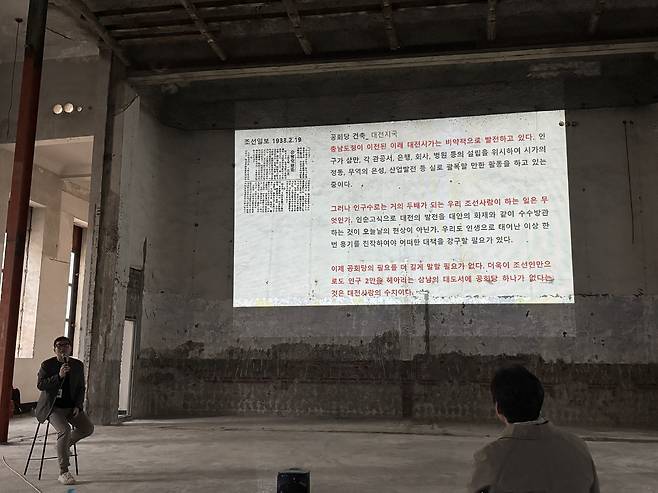 조선일보 1933.2.19
공회당 건축_ 대전지국
충남도청이 이전된 이래 대전시가는 비약적으로 발전하고 있다. 인
구가 삼만, 각 관공서, 은행, 회사, 병원 등의 설립을 위시하여 시가의
정통, 무역의 은성, 산업발전 등 실로 괄목할 만한 활동을 하고 있는
중이다.
그러나 인구수로는 거의 두배가 되는 우리 조선사람이 하는 일은 무
엇인가. 인순고식으로 대전의 발전을 대안의 화재와 같이 수수방관
하는 것이 오늘날의 현상이 아닌가. 우리도 인생으로 태어난 이상 한
번 용기를 진작하여야 어떠한 대책을 강구할 필요가 있다.
이제 공회당의 필요를 더 길게 말할 필요가 없다. 더욱이 조선인만으
로도 인구 2만을 헤아리는 삼남의 대도서에 공회당 하나가 없다는
것은 대전사람의 수치이다.